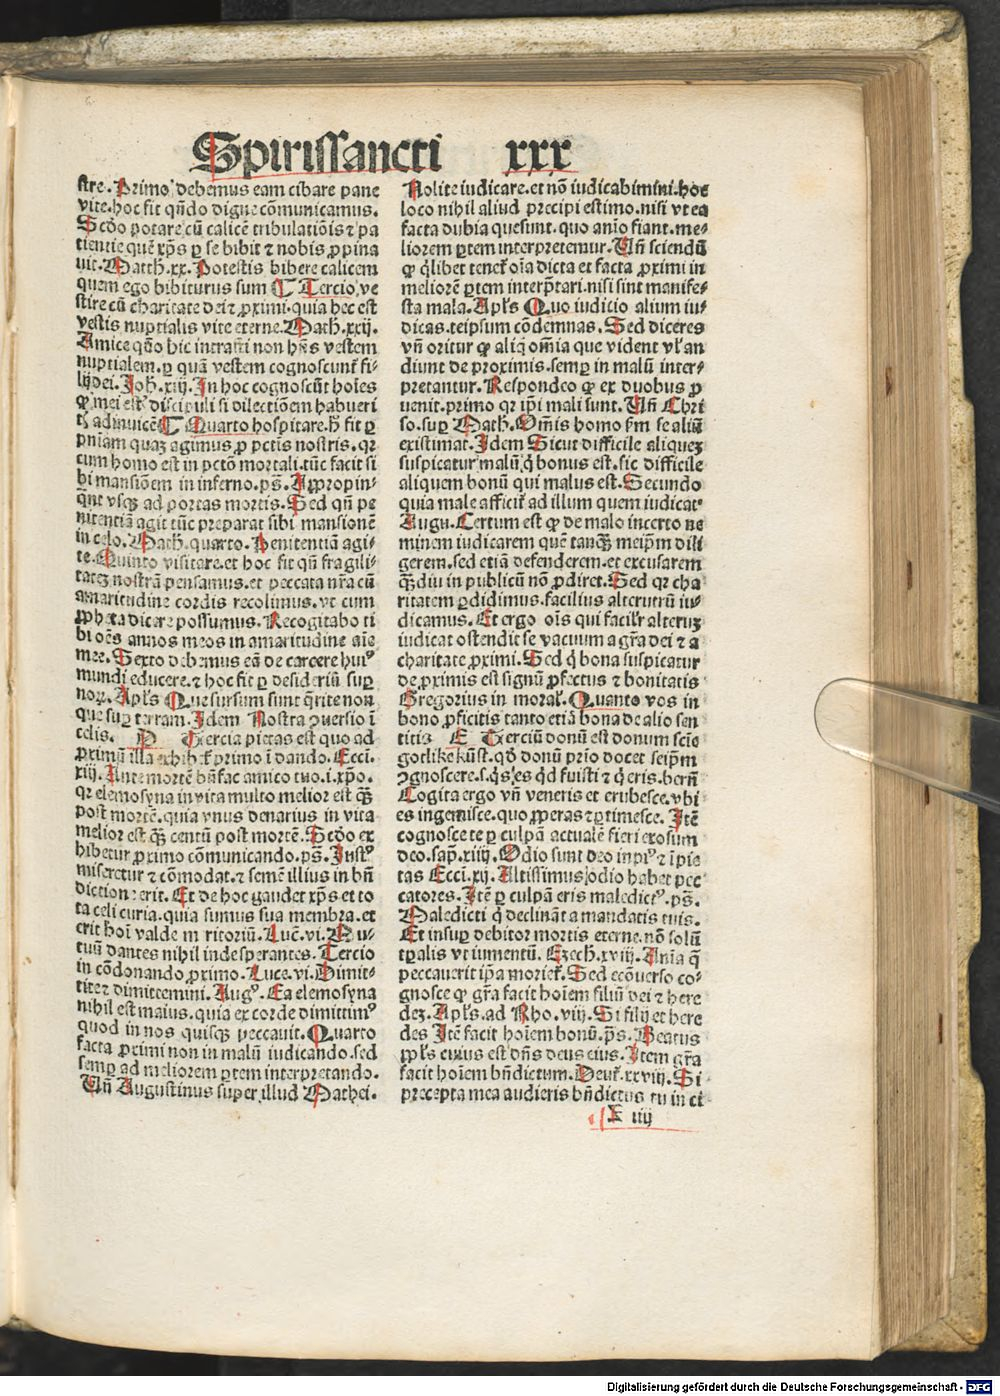 Spirissancti xxx
stre. Primo debemus eam cibare pane
vite. hoc fit qñdo digne cōmunicamus.
Scdo potare cū calicē tribulatiōis ⁊ pa
tientie quē xp̄s ꝑ se bibit ⁊ nobis ꝓpina
uit. Matth. xx. Potestis bibere calicem
quem ego bibiturus sum ¶ Tercio, ve
stire cū charitate dei ⁊ ꝓximi. quia hec est
vestis nuptialis vite eterne. Math. xxij.
Amice qūo huc intrasti non hñs vestem
nuptialem. ꝑ quā vestem cognoscunt̄ fi⸗
lij dei. Joh. xiij. In hoc cognoscūt hoīes
ꝙ mei estꝭ discipuli si dilectiōem habueri
tꝭ adinuicē ¶ Quarto hospitare. hꝰ fit ꝑ
pn̄iam quaꝫ agimus ꝓ pctīs nostris. qꝛ
cum homo est in pctō mortali. tūc facit si
bi mansiōem in inferno. ps̄. Appropin⸗
q̄nt vsqꝫ ad portas mortis. Sed qñ pe
nitentiā agit tūc preparat sibi mansionē
in celo. Math. quarto. Penitentiā agi⸗
te. Quinto visitare. et hoc fit qñ fragili⸗
tateꝫ nostrā pensamus. et peccata nr̄a cū
amaritudine cordis recolimus. vt cum
ꝓpheta dicere possumus. Recogitabo ti
bi oēs annos meos in amaritudine aīe
mee. Sexto debemus eā de carcere huiꝰ
mundi educere. ⁊ hoc fit ꝑ desideriū suꝑ
noꝝ. Apl̄s Que sursum sunt q̄rite non
que suꝑ terram. Idem Nostra ↄuersio ī
celis. D Tercia pietas est quo ad
ꝓximū illa exhibet̄ primo ī dando. Ecci.
xiij. Ante mortē bn̄fac amico tuo. i. xp̄o.
qꝛ elemosyna in vita multo melior est qꝫ̄
post mortē. quia vnus denarius in vita
melior est qꝫ̄ centū post mortē. Scdo ex
hibetur ꝓximo cōmunicando. ps̄. Iustꝰ
miseretur ⁊ cōmodat. ⁊ semē illius in bn̄
diction erit. Et de hoc gaudet xp̄s et to
ta celi curia. quia sumus sua membra. et
erit hoī valde m ritoriū. Luc̄. vi. Mu⸗
tuū dantes nihil inde sperantes. Tercio
in cōdonando ꝓximo. Luce. vi. Dimit⸗
tite ⁊ dimittemini. Augꝰ. Ea elemosyna
nihil est maius. quia ex corde dimittimꝰ
quod in nos quisqꝫ peccauit. Quarto
facta ꝓximi non in malū iudicando. sed
semꝑ ad meliorem ꝑtem interpretando.
Vñ Augustinus super illud Mathei.
Nolite iudicare. et nō iudicabimini. hoc
loco nihil aliud precipi estimo. nisi vt ea
facta dubia que sunt. quo anīo fiant. me⸗
liorem ꝑtem interpretemur. Vñ sciendū
ꝙ q̄libet tenet̄ oīa dicta et facta ꝓximi in
meliorē ꝑtem interp̄tari. nisi sint manife⸗
sta mala. Apl̄s Quo iudicio alium iu⸗
dicas. teipsum cōdemnas. Sed diceres
vñ oritur ꝙ aliq̄ omīa que vident vl̓ an
diunt de proximis. semꝑ in malū inter⸗
pretantur. Respondeo ꝙ ex duobus ꝓ
uenit. primo qꝛ ip̄i mali sunt. Vñ Chri
so. suꝑ Math. Om̄is homo fm se aliū
existimat. Idem Sicut difficile aliqueꝫ
suspicatur malū q̄ bonus est. sic difficile
aliquem bonū qui malus est. Secundo
quia male afficit̄ ad illum quem iudicat⸗
Augu. Certum est ꝙ de malo incerto ne
minem iudicarem quē tanqꝫ̄ meip̄m dili
gerem. sed etiā defenderem. et excusarem
qꝫ̄diu in publicū nō ꝓdiret. Sed qꝛ cha
ritatem ꝑdidimus. facilius alterutrū iu⸗
dicamus. Et ergo oīs qui facilr̄ alteruꝫ
iudicat ostendit se vacuum a gr̄a dei ⁊ a
charitate ꝓximi. Sed q̄ bona suspicatur
de ꝓximis est signū ꝓfectus ⁊ bonitatis
Gregorius in moral̓. Quanto vos in
bono ꝓficitis tanto etiā bona de alio sen
titis E Terciū donū est donum sciē
gotlike kūst. qd̄ donū prīo docet seip̄m
ↄgnoscere. s. qͥs es q̄d fuisti ⁊ q̄ eris. bern̄
Cogita ergo vñ veneris et erubesce. vbi
es ingemisce. quo ꝓperas ⁊ ꝑtimesce. Itē
cognosce te ꝑ culpā actualē fieri exosum
deo. sap̄. xiiij. Odio sunt deo inpiꝰ ⁊ īpie
tas Ecci. xij. Altissimus odio habet pec
catores. Itē ꝑ culpā eris maledictꝰ. ps̄.
Maledicti q̄ declināt a mandatis tuis.
Et insuꝑ debitor mortis eterne. nō solū
tꝑalis vt iumentū. Ezech. xviij. Anīa q̄
peccauerit ip̄a moriet̄. Sed ecōuerso co⸗
gnosce ꝙ gr̄a facit hoīem filiū dei ⁊ here
deꝫ. Apl̄s. ad Rho. viij. Si filij et here
des Itē facit hoīem bonū. ps̄. Beatus
ppl̄s cuius est dn̄s deus eius. Item gr̄a
facit hoīem bn̄dictum. Deut̄. xxviij. Si
precepta mea audieris bn̄dictus tu in ci
E iiij
Digitalisierung gefördert durch die Deutsche Forschungsgemeinschaft - DFG